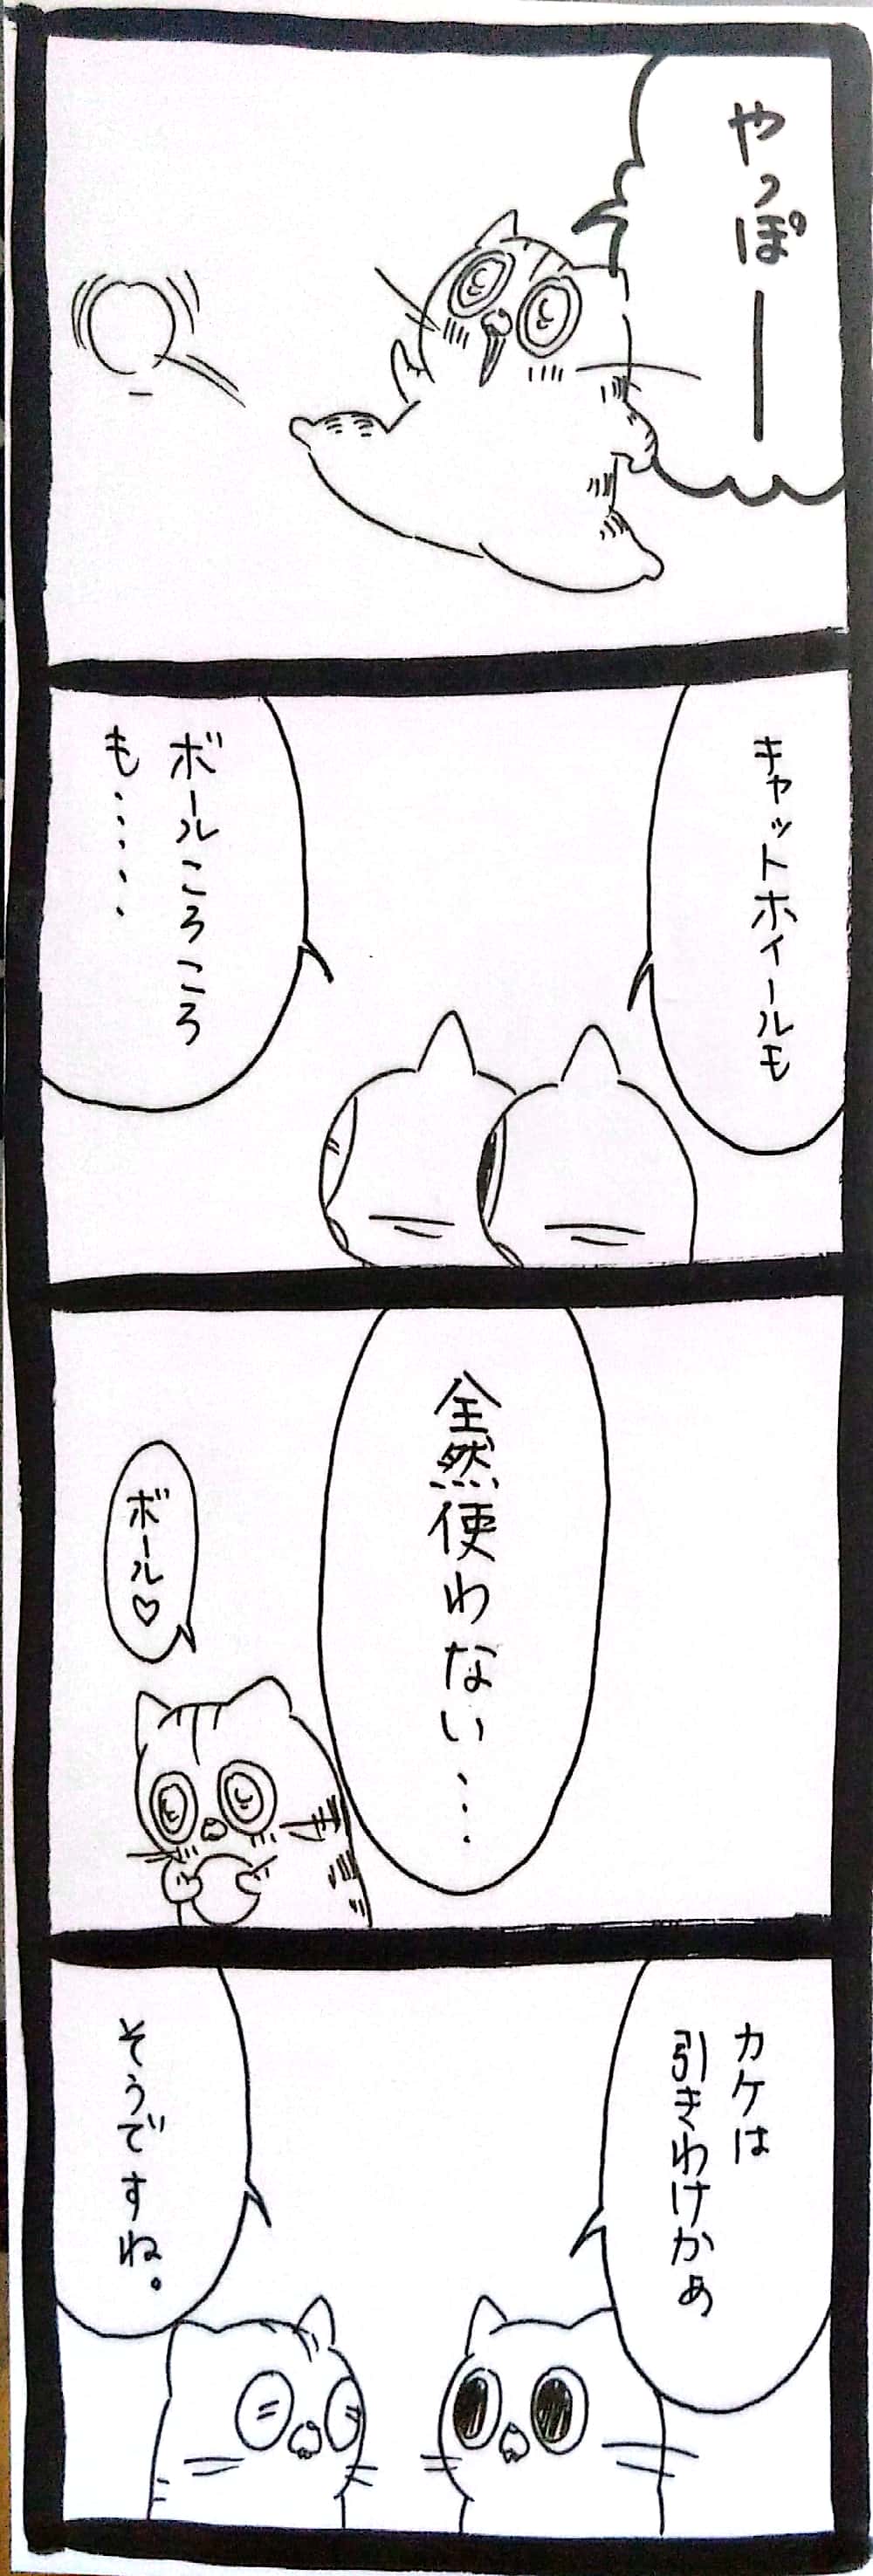 やっぽー
キャットホイールも
ボールころころ
も……
全然使わない…
ボール♡
カケは
引きわけかぁ
そうですね。